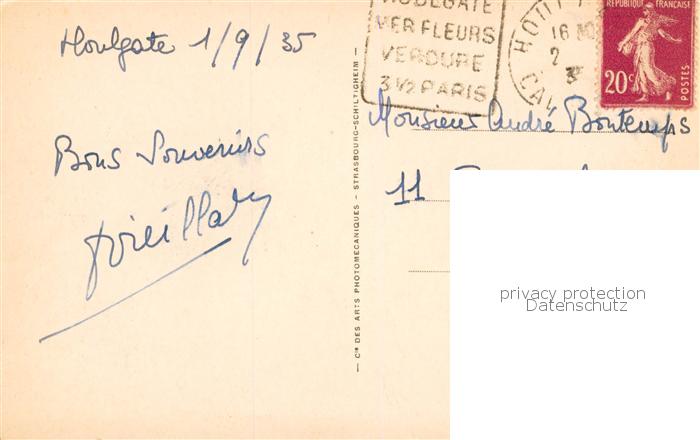 Houlgate 1/9/35
Bons Souvenirs
HOULGATE
MER FLEURS
VERDURE
3 1/2 PARIS
HOUL
16
2
CAL
REPUBLIQUE FRANÇAISE
20c
POSTES
Monsieur André Bontemps
11
— Cie DES ARTS PHOTOMECANIQUES - STRASBOURG-SCHILTIGHEIM —
privacy protection
Datenschutz